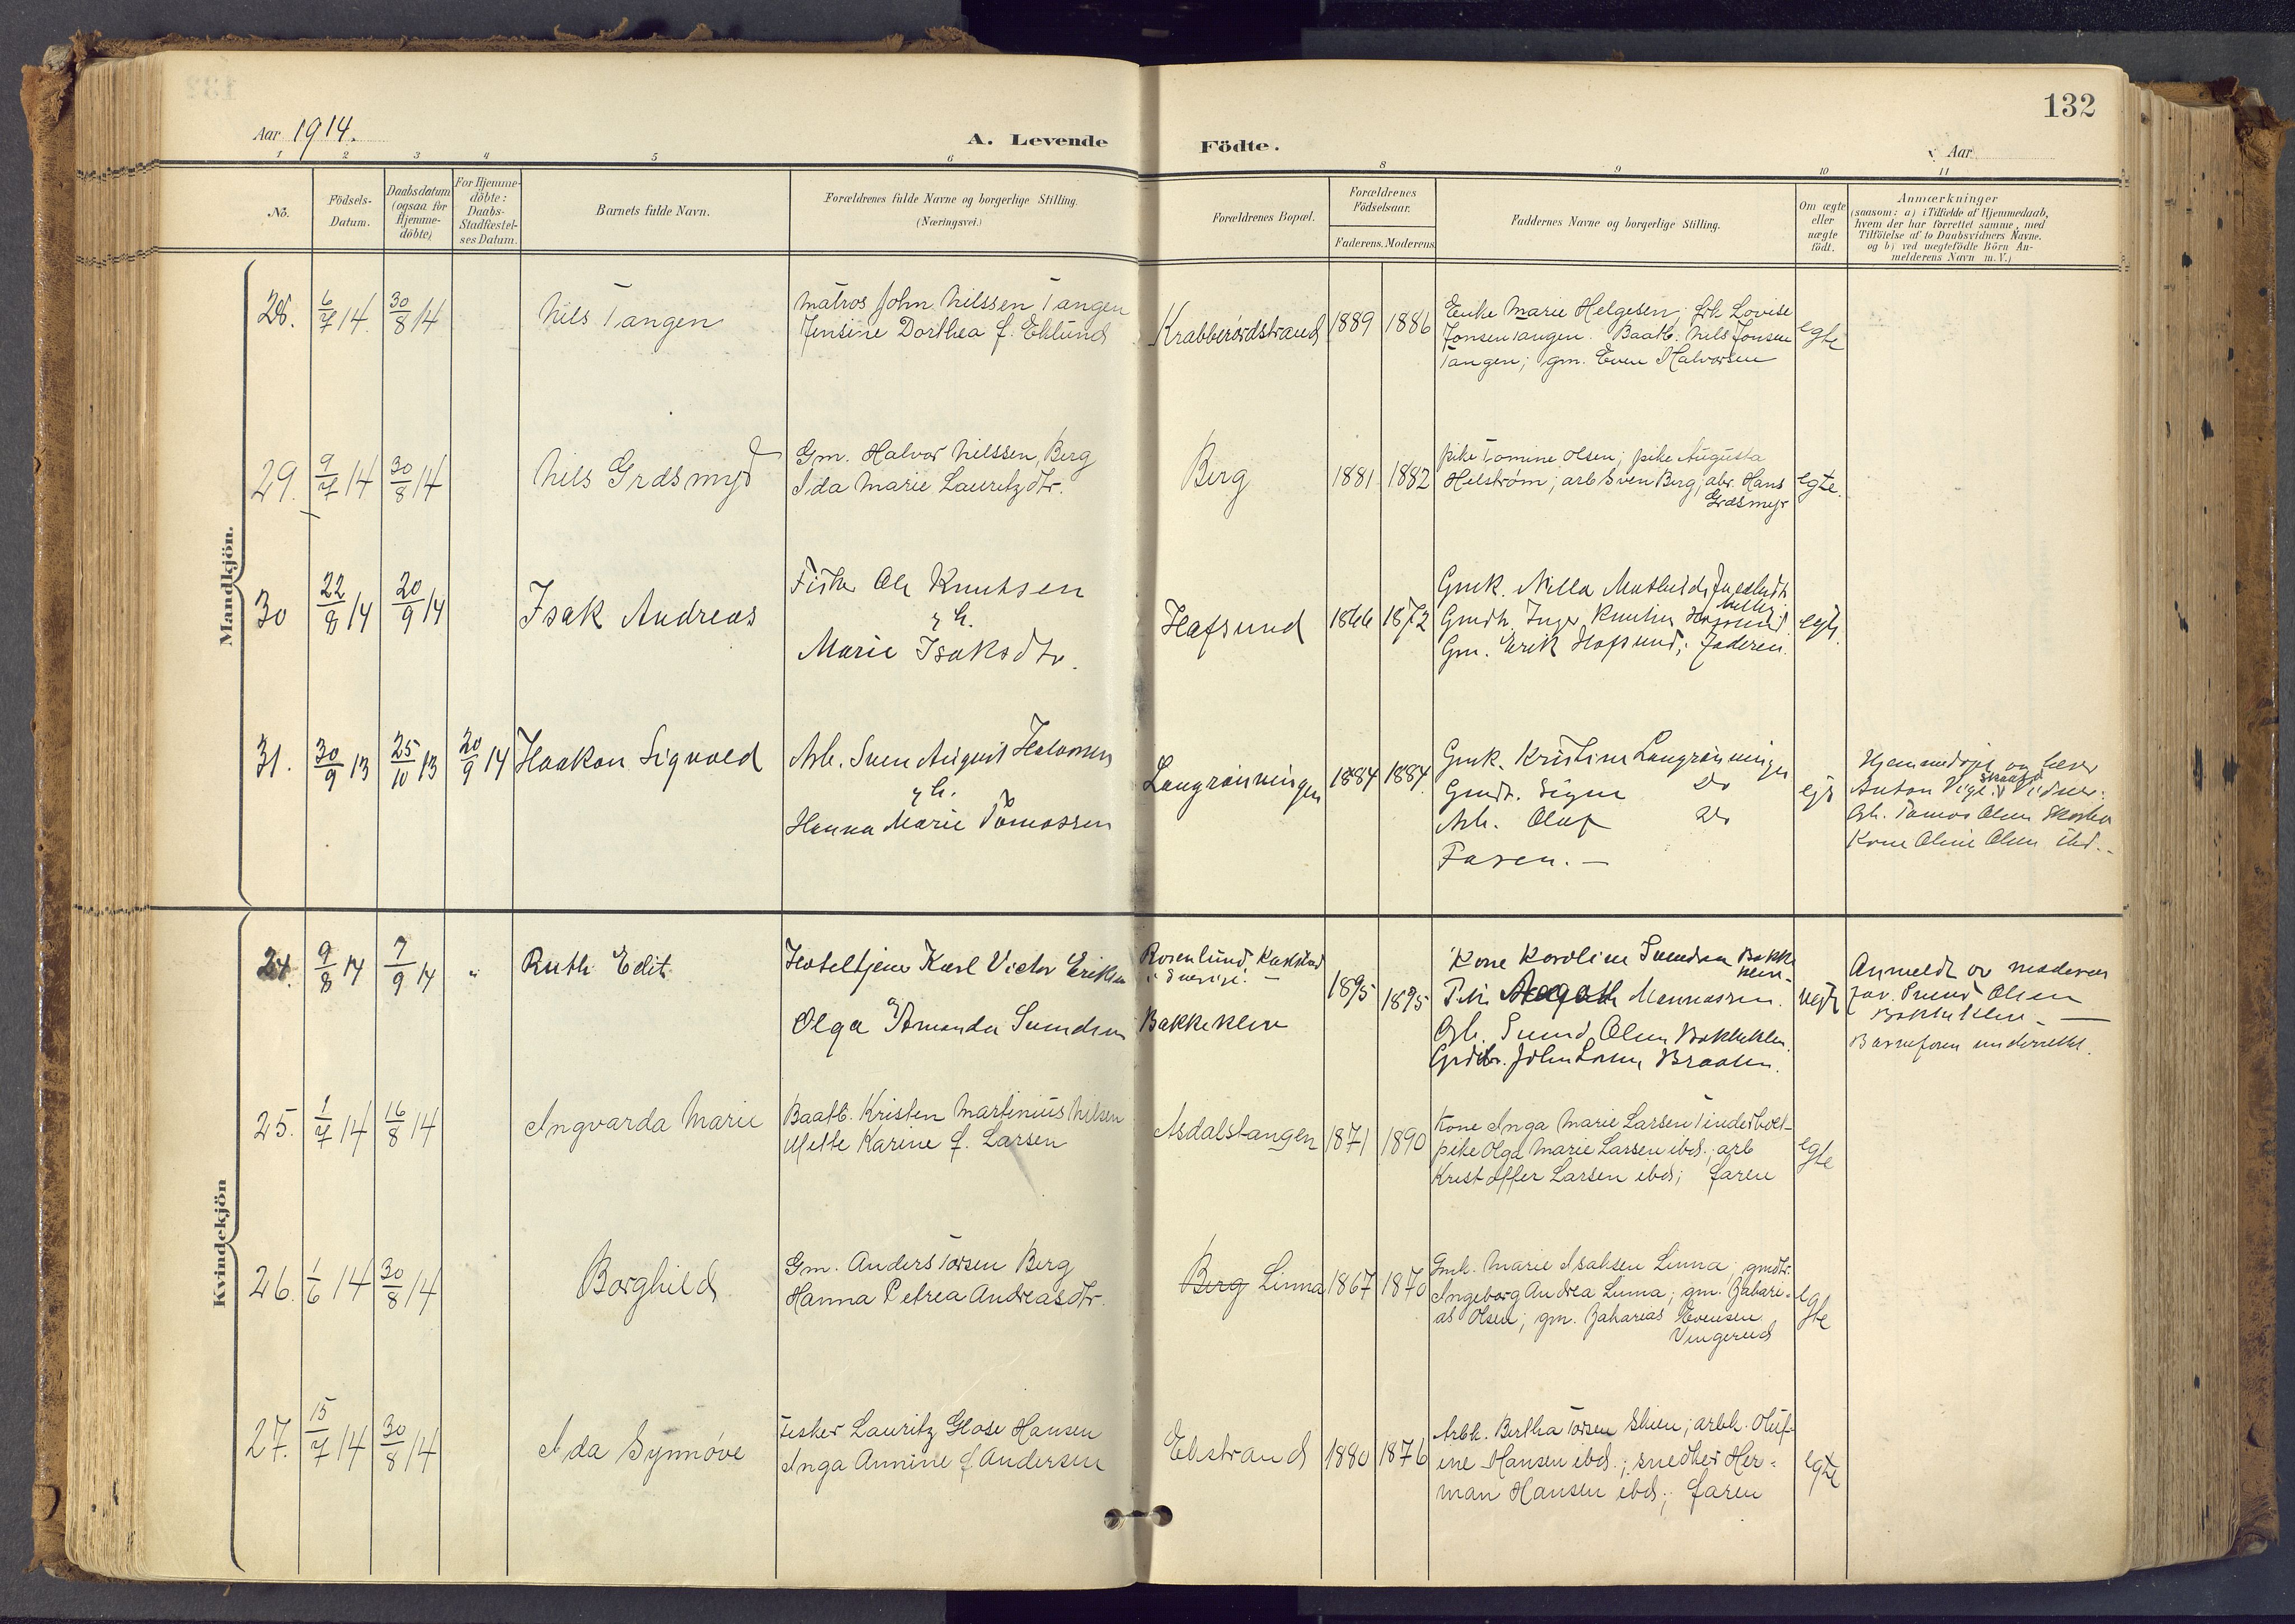 132
Aar 1914.
A. Levende Födte.
Aar
1 2 3 4 5 6 8 9 10 11
No.
Födsels-
Datum.
Daabsdatum
(ogsaa for
Hjemme-
döbte)
For Hjemme-
döbte:
Daabs-
Stadfæstel-
ses Datum.
Barnets fulde Navn.
Forældrenes fulde Navne og borgerlige Stilling.
(Næringsvei.)
Forældrenes Bopæl.
Forældrenes
Födselsaar.
Faderens. Moderens
Faddernes Navne og borgerlige Stilling.
Om ægte
eller
uægte
födt.
Anmærkninger
(saasom: a) i Tilfælde af Hjemmedaab,
hvem der har forrettet samme, med
Tilföielse af to Daabsvidners Navne.
og b) ved uægtefödte Börn An-
melderens Navn m.V.)
Mandkjön.
28. 6/7 14. 30/8 14
Nils Tangen
Matros John Nilssen Tangen
Jensine Dorthea f. Eklund
Krabberødstrand 1889 1886
Enke Marie Helgesen; frk Lovise
Jonsen Tangen. Baatb. Nils Jonsen
Tangen; gm. Even Halvorsen
egte
29. 9/7 14 30/8 14
Nils Gräsmyr
Gm. Halvor Nilssen, Berg
Ida Marie Lauritzdtr.
Berg 1881 1882
pike Tomine Olsen; pike Augusta
Helstrøm; arb Sven Berg; abr. Hans
Gräsmyr
egte.
30 22/8 14 20/9 14
Isak Andreas
Fisker Ole Knutsen
og h.
Marie Isaksdtr.
Hafsund 1866 1872
Gmk. Nilla Mathilde
Gmdtr. Inger Knutsen Hafsund
Gm. Erik Hafsund; Faderen.
egte.
31. 30/9 13 25/10 13 20/9 14
Haakon Sigvald
Arb. Sven August Halvorsen
og h.
Hanna Marie Tomassen
Langrønningen 1884 1884
Gmk. Kristine Langrønningen
Gmdt. Signe do
Arb. Oluf do
Faren. —
egte
Anton
Arb. Tomas Olsen
Kone Oline Olsen ibd.
Kvindekjön
24. 9/8 14 7/9 14 "
Ruth Edit
Hoteltjener Karl Victor Eriksen
og
Olga Amanda Svendsen
Rosenlund
i Sverige. —
Bakkeklev
1895 1895
Kone Karoline Svendsen Bakke
klev
Mennassen.
Arb. Svend Olsen Bakkeklev.
Grdbr. John Larsen Braaten.
uegte
Anmeldt av moderen
far. Svend Olsen
Bakkeklev. —
Barnefaren underrettet.
25. 1/7 14 16/8 14
Ingvarda Marie
Baatb. Kristen Martinius Nilsen
Mette Karine f. Larsen
Asdalstangen 1871 1890
Kone Inga Marie Larsen Tinderholt-
pike Olga Marie Larsen ibd.; arb
Kristoffer Larsen ibd; faren
egte
26. 1/6 14 30/8 14
Borghild
Gm. Anders Torsen Berg
Hanna Petrea Andreasdtr.
Berg Linna 1867 1870
Gmk. Marie Isaksen Linna; gmdtr.
Ingeborg Andrea Linna; gm. Zakari-
as Olsen; gm. Zakarias Evensen
Vingerud
egte
27. 15/7 14 30/8 14
Ida Synnøve
Fisker Lauritz Glase Hansen
Inga Annine f Andersen
Ekstrand 1880 1876
Arbk. Bertha Torsen Skien; arbk. Oluf-
ine Hansen ibd.; snedker Her-
man Hansen ibd; faren
egte